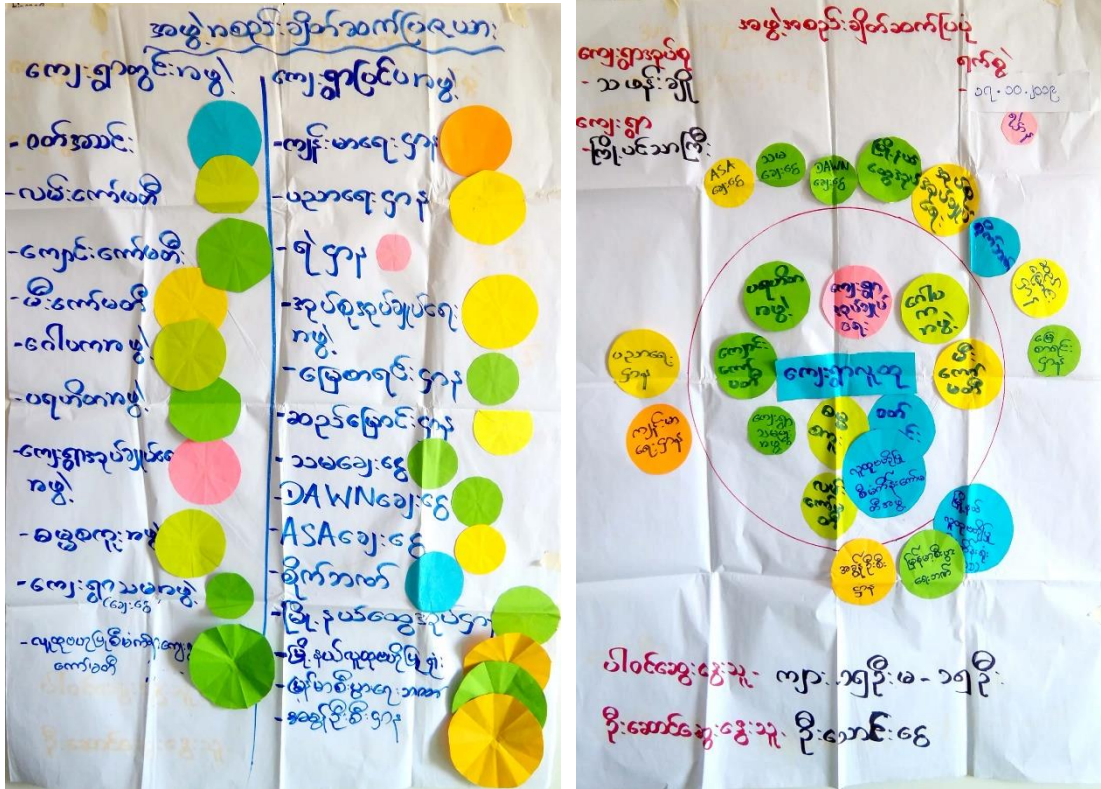 အဖွဲ့အစည်းချိတ်ဆက်ပြဇယား
ကျေးရွာတွင်းအဖွဲ့
- ဝတ်အသင်း
- လမ်းကော်မတီ
- ကျောင်းကော်မတီ
- မီးကော်မတီ
- ဂေါပကအဖွဲ့
- ပရဟိတအဖွဲ့
- ကျေးရွာအုပ်ချုပ်ရေး
အဖွဲ့
- ဓမ္မစကူးအဖွဲ့
- ကျေးရွာသမအဖွဲ့
(ချေးငွေ)
- လူထုဗဟိုပြုစီမံကိန်းကျေးရွာ
ကော်မတီ
ကျေးရွာပြင်ပအဖွဲ့
- ကျန်းမာရေးဌာန
- ပညာရေးဌာန
- ရဲဌာန
- အုပ်စုအုပ်ချုပ်ရေး
အဖွဲ့
- မြေစာရင်းဌာန
- ဆည်မြောင်းဌာန
- သမချေးငွေ
- DAWNချေးငွေ
- ASAချေးငွေ
- စိုက်ဘဏ်
- မြို့နယ်ထွေအုပ်ဌာန
- မြို့နယ်လူထုဗဟိုပြုရုံး
- မြန်မာစီးပွားရေးဘဏ်
- အခွန်ဦးစီးဌာန
အဖွဲ့အစည်းချိတ်ဆက်ပြပုံ
ကျေးရွာအုပ်စု
- သဖန်းချို
ကျေးရွာ
- ကြို့ပင်သာကြီး
ရက်စွဲ
- ၁၇.၁၀.၂၀၁၉
ရဲဌာန
ASA
ချေးငွေ
သမ
ချေးငွေ
DAWN
ချေးငွေ
မြို့နယ်
ထွေအုပ်
အုပ်စု
အုပ်ချုပ်
ရေး
စိုက်ဘဏ်
ဆည်
မြောင်း
ဌာန
မြေ
စာရင်း
ဌာန
ပရဟိတ
အဖွဲ့
ကျေးရွာ
အုပ်ချုပ်
ရေး
ဂေါပ
က
အဖွဲ့
ပညာရေး
ဌာန
ကျောင်း
ကော်
မတီ
ကျေးရွာလူထု
မီး
ကော်
မတီ
ကျန်းမာ
ရေးဌာန
ကျေးရွာ
သမမျှ
အဖွဲ့
ဓမ္မ
စကူး
ဝတ်
သင်း
လူထုဗဟိုပြု
စီမံကိန်းကော်မ
တီအဖွဲ့
လမ်း
ကော်
မတီ
မြို့နယ်
လူထုဗဟိုပြု
အခွန်ဦးစီး
ဌာန
မြန်မာ့စီးပွား
ရေးဘဏ်
ပါဝင်ဆွေးနွေးသူ - ကျား ၁၅ဦး မ - ၁၅ဦး
ဦးဆောင်ဆွေးနွေးသူ - ဦးသောင်းငွေ